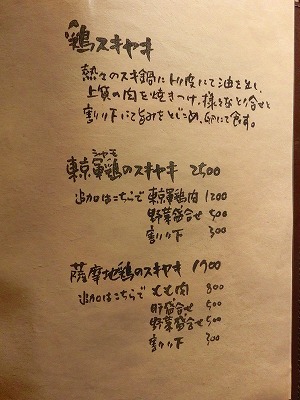 鶏スキヤキ
熱々のスキ鍋にトリ皮にて油を出し、
上質の肉を焼きつけ、様々なとり合せと
割り下にて旨みをとじこめ、卵にて食す。
シャモ
東京軍鶏のスキヤキ 2500
追加はこちらで 東京軍鶏肉 1200
野菜盛合せ 500
割り下 300
薩摩地鶏のスキヤキ 1900
追加はこちらで もも肉 800
肝盛合せ 500
野菜盛合せ 500
割り下 300